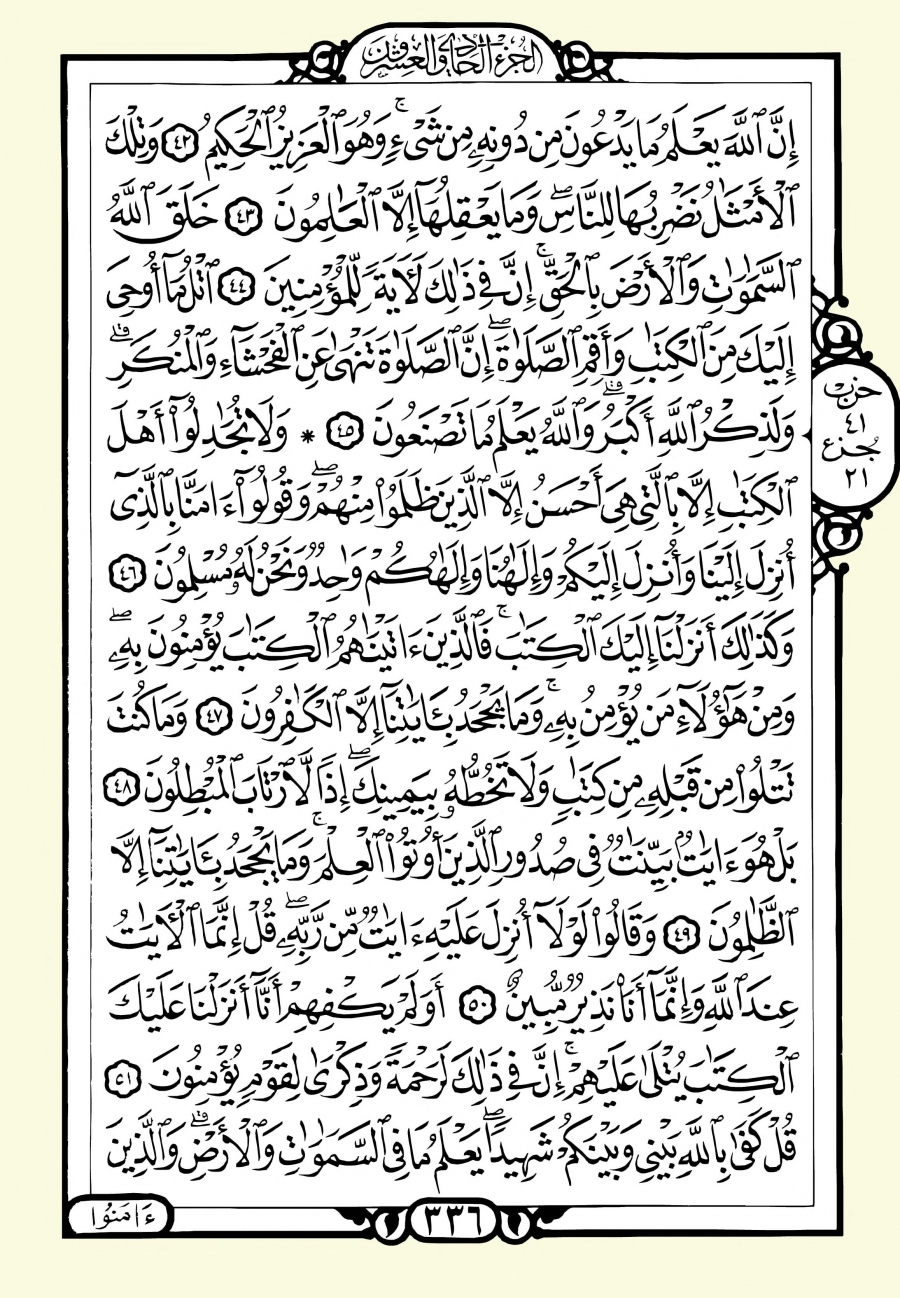 الجزء الحادي والعشرون
إِنَّ ٱللَّهَ يَعْلَمُ مَا يَدْعُونَ مِن دُونِهِۦ مِن شَىْءٍۚ وَهُوَ ٱلْعَزِيزُ ٱلْحَكِيمُ ٤٢ وَتِلْكَ
ٱلْأَمْثَٰلُ نَضْرِبُهَا لِلنَّاسِۖ وَمَا يَعْقِلُهَآ إِلَّا ٱلْعَٰلِمُونَ ٤٣ خَلَقَ ٱللَّهُ
ٱلسَّمَٰوَٰتِ وَٱلْأَرْضَ بِٱلْحَقِّۚ إِنَّ فِى ذَٰلِكَ لَءَايَةً لِّلْمُؤْمِنِينَ ٤٤ ٱتْلُ مَآ أُوحِىَ
إِلَيْكَ مِنَ ٱلْكِتَٰبِ وَأَقِمِ ٱلصَّلَوٰةَۖ إِنَّ ٱلصَّلَوٰةَ تَنْهَىٰ عَنِ ٱلْفَحْشَآءِ وَٱلْمُنكَرِۗ
وَلَذِكْرُ ٱللَّهِ أَكْبَرُۗ وَٱللَّهُ يَعْلَمُ مَا تَصْنَعُونَ ٤٥ * وَلَا تُجَٰدِلُوٓا۟ أَهْلَ
ٱلْكِتَٰبِ إِلَّا بِٱلَّتِى هِىَ أَحْسَنُ إِلَّا ٱلَّذِينَ ظَلَمُوا۟ مِنْهُمْۖ وَقُولُوٓا۟ ءَامَنَّا بِٱلَّذِىٓ
أُنزِلَ إِلَيْنَا وَأُنزِلَ إِلَيْكُمْ وَإِلَٰهُنَا وَإِلَٰهُكُمْ وَٰحِدٌ وَنَحْنُ لَهُۥ مُسْلِمُونَ ٤٦
وَكَذَٰلِكَ أَنزَلْنَآ إِلَيْكَ ٱلْكِتَٰبَۚ فَٱلَّذِينَ ءَاتَيْنَٰهُمُ ٱلْكِتَٰبَ يُؤْمِنُونَ بِهِۦۖ
وَمِنْ هَٰٓؤُلَآءِ مَن يُؤْمِنُ بِهِۦۚ وَمَا يَجْحَدُ بِـَٔايَٰتِنَآ إِلَّا ٱلْكَٰفِرُونَ ٤٧ وَمَا كُنتَ
تَتْلُوا۟ مِن قَبْلِهِۦ مِن كِتَٰبٍ وَلَا تَخُطُّهُۥ بِيَمِينِكَۖ إِذًا لَّٱرْتَابَ ٱلْمُبْطِلُونَ ٤٨
بَلْ هُوَ ءَايَٰتٌۢ بَيِّنَٰتٌ فِى صُدُورِ ٱلَّذِينَ أُوتُوا۟ ٱلْعِلْمَۚ وَمَا يَجْحَدُ بِـَٔايَٰتِنَآ إِلَّا
ٱلظَّٰلِمُونَ ٤٩ وَقَالُوا۟ لَوْلَآ أُنزِلَ عَلَيْهِ ءَايَٰتٌ مِّن رَّبِّهِۦۖ قُلْ إِنَّمَا ٱلْءَايَٰتُ
عِندَ ٱللَّهِ وَإِنَّمَآ أَنَا۠ نَذِيرٌ مُّبِينٌ ٥٠ أَوَلَمْ يَكْفِهِمْ أَنَّآ أَنزَلْنَا عَلَيْكَ
ٱلْكِتَٰبَ يُتْلَىٰ عَلَيْهِمْۚ إِنَّ فِى ذَٰلِكَ لَرَحْمَةً وَذِكْرَىٰ لِقَوْمٍ يُؤْمِنُونَ ٥١
قُلْ كَفَىٰ بِٱللَّهِ بَيْنِى وَبَيْنَكُمْ شَهِيدًاۖ يَعْلَمُ مَا فِى ٱلسَّمَٰوَٰتِ وَٱلْأَرْضِۗ وَٱلَّذِينَ
حزب
٤١
جزء
٢١
٣٣٦
ءَامَنُوا